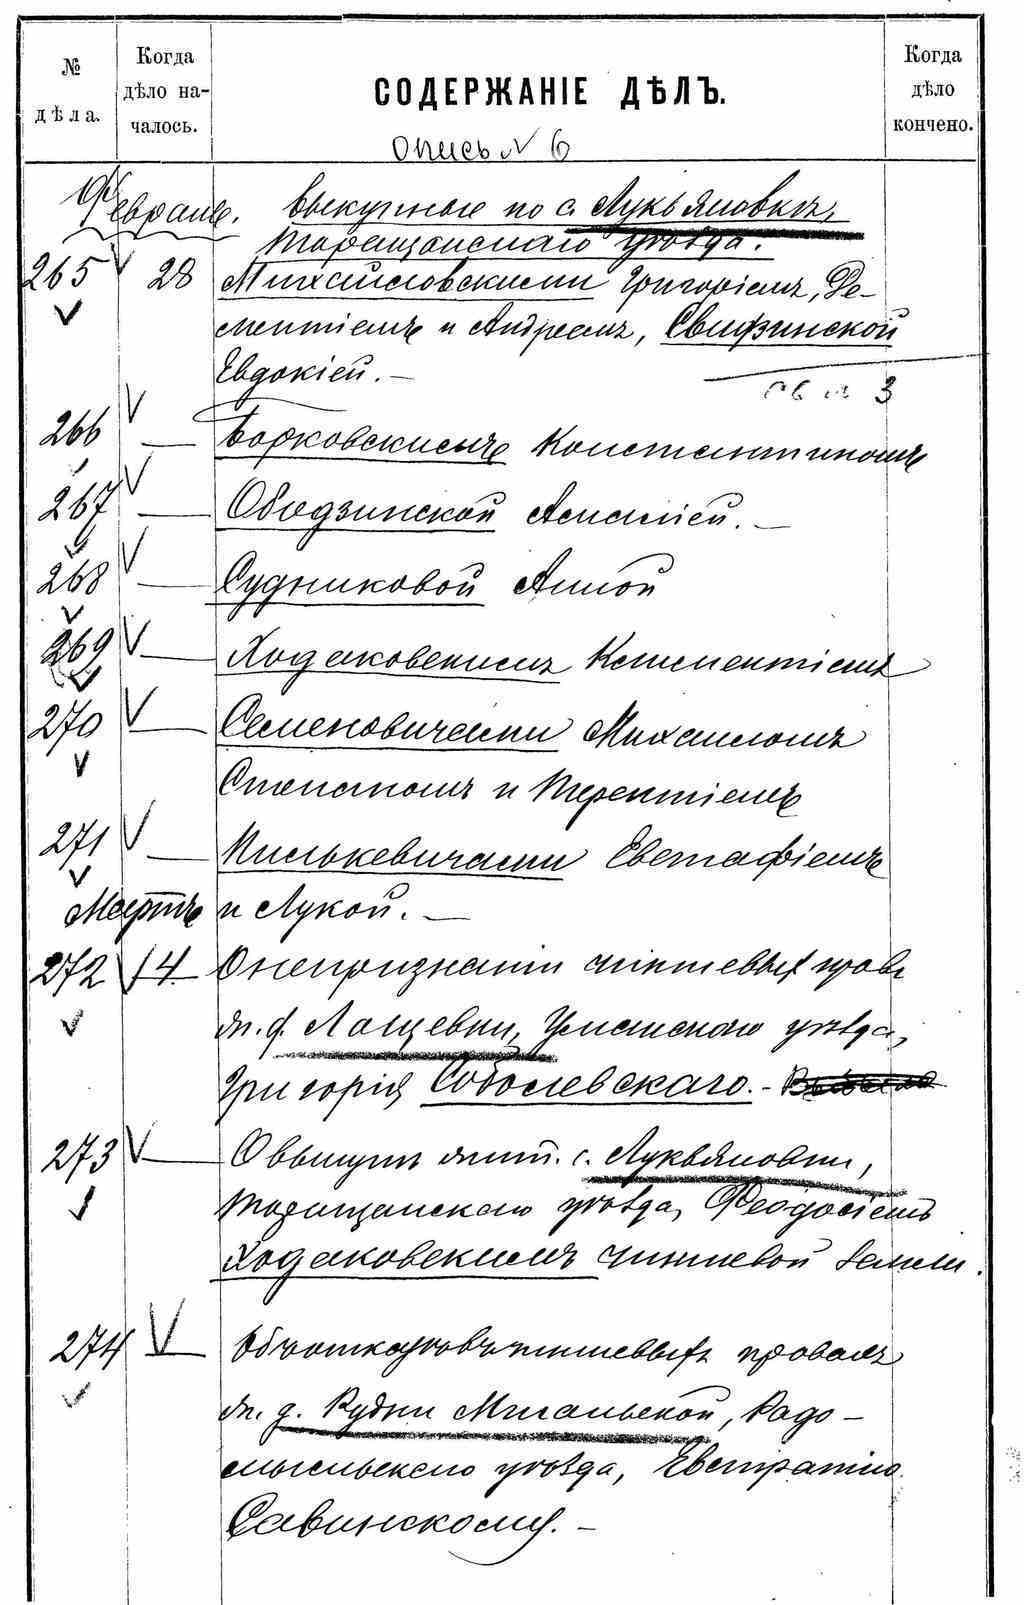 № дѣла.
Когда дѣло началось.
СОДЕРЖАНІЕ ДѢЛЪ.
Когда дѣло кончено.
Опись № 6
Февраль. Выкупные по с. Лукьяновкѣ,
Таращанскаго уѣзда.
265 28 Михайловскими Григоріемъ, Де-
ментіемъ и Андреемъ, Свидзинской
Евдокіей. —
3
266 — Борковскимъ Константиномъ
267 — Ободзинской Аманіей. —
268 — Судниковой Анной
269 — Ходаковскимъ Климентіемъ
270 — Семеновичами Михаиломъ
Степаномъ и Терентіемъ
271 — Пилькевичами Евстафіемъ
Мартъ и Лукой. —
272 14 О непризнаніи чиншевыхъ правъ
жит. д. Лащевки, Уманскаго уѣзда,
Григорія Соболевскаго. —
273 — О выкупѣ жит. с. Лукьяновки,
Таращанскаго уѣзда, Феодосіемъ
Ходаковскимъ чиншевой земли.
274 — Объ отказѣ въ чиншевыхъ правахъ
жит. д. Рудни Мигальской, Радо-
мысльскаго уѣзда, Евстратію
Савинскому. —